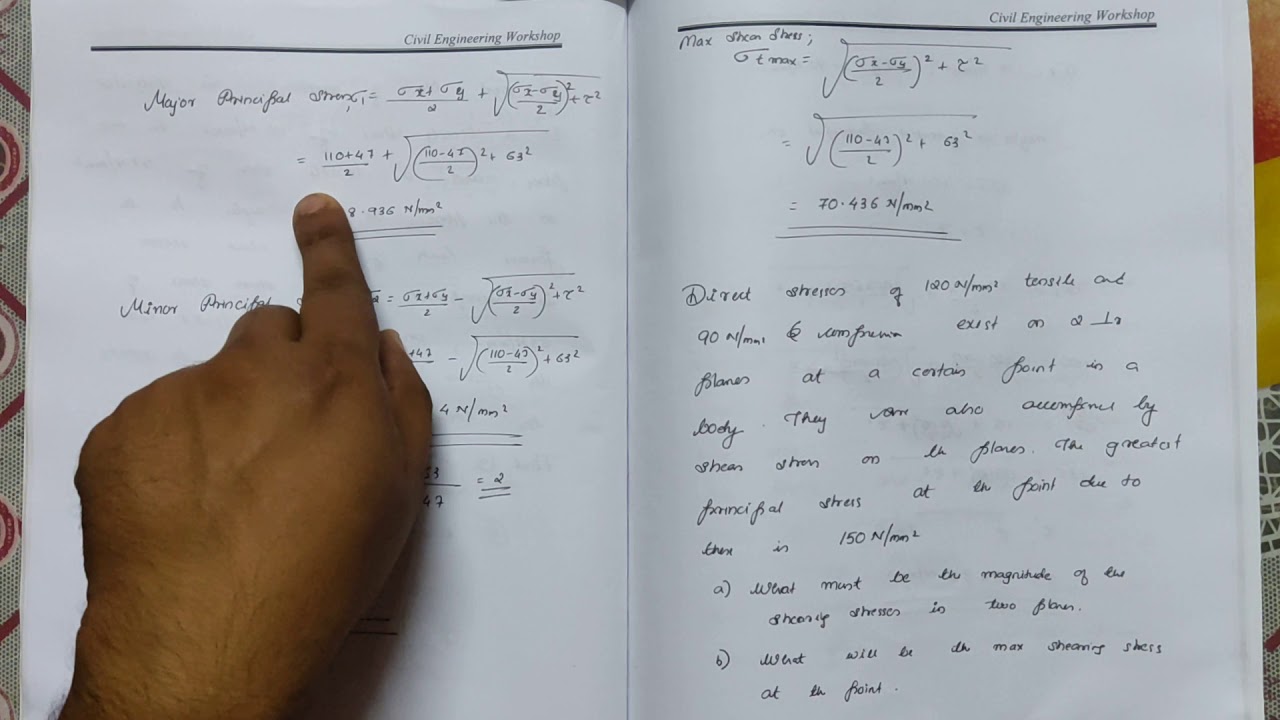 Civil Engineering Workshop
Major Principal stress σ1 = σx+σy/2 + √(σx-σy/2)²+τ²
= 110+47/2 + √(110-47/2)²+ 63²
8.936 N/mm²
Minor Principal = σx+σy/2 - √(σx-σy/2)²+τ²
+47/2 - √(110-47/2)²+63²
4 N/mm²
63/47 = 2
Civil Engineering Workshop
Max Shear Stress;
σt max = √(σx-σy/2)² + τ²
= √(110-47/2)² + 63²
= 70.436 N/mm²
Direct stresses of 120 N/mm² tensile and
90 N/mm² exist on 2 ⊥r
planes at a certain point in a
body. They are also by
shear stress on th planes. The greatest
principal stress at th point due to
these is 150 N/mm²
a) What must be th magnitude of the
shearing stresses in two planes.
b) What will be th max shearing stress
at th point.